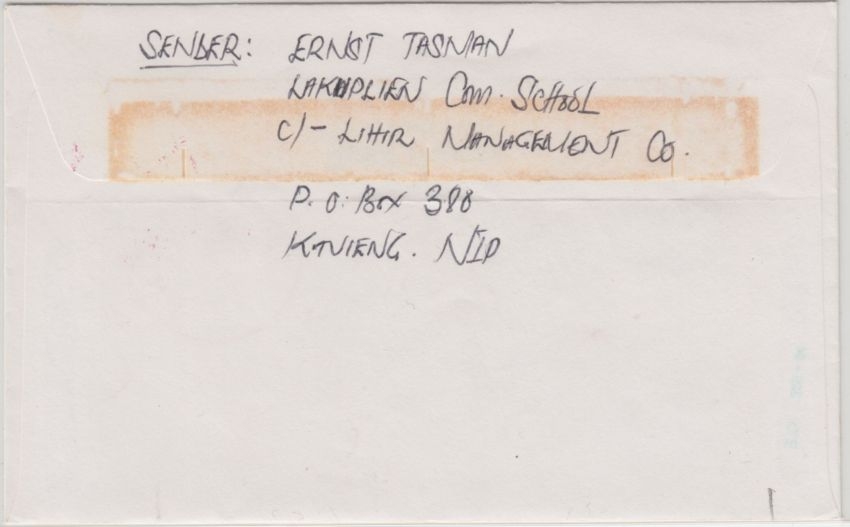 SENDER: ERNST TASMAN
LAKUPLIEN Com. SCHOOL
C/- LIHIR MANAGEMENT Co.
P. O. Box 380
KAVIENG. NIP